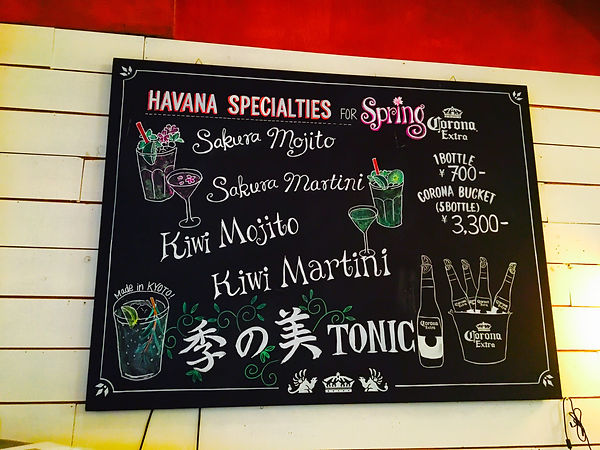 HAVANA SPECIALTIES FOR Spring
Sakura Mojito
Sakura Martini
Kiwi Mojito
Kiwi Martini
Made in KYOTO!
季の美 TONIC
Corona
Extra
1BOTTLE
¥700-
CORONA BUCKET
(5BOTTLE)
¥3,300-
Corona
Extra